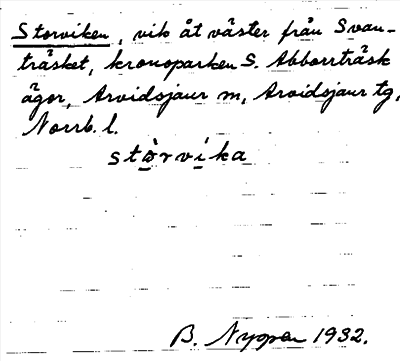 Storviken, vik åt väster från Svan-
träsket, kronoparken S. Abborrträsk
ägor, Arvidsjaur m, Arvidsjaur tg,
Norrb. l.
stòrvika
B. Nyman 1932.